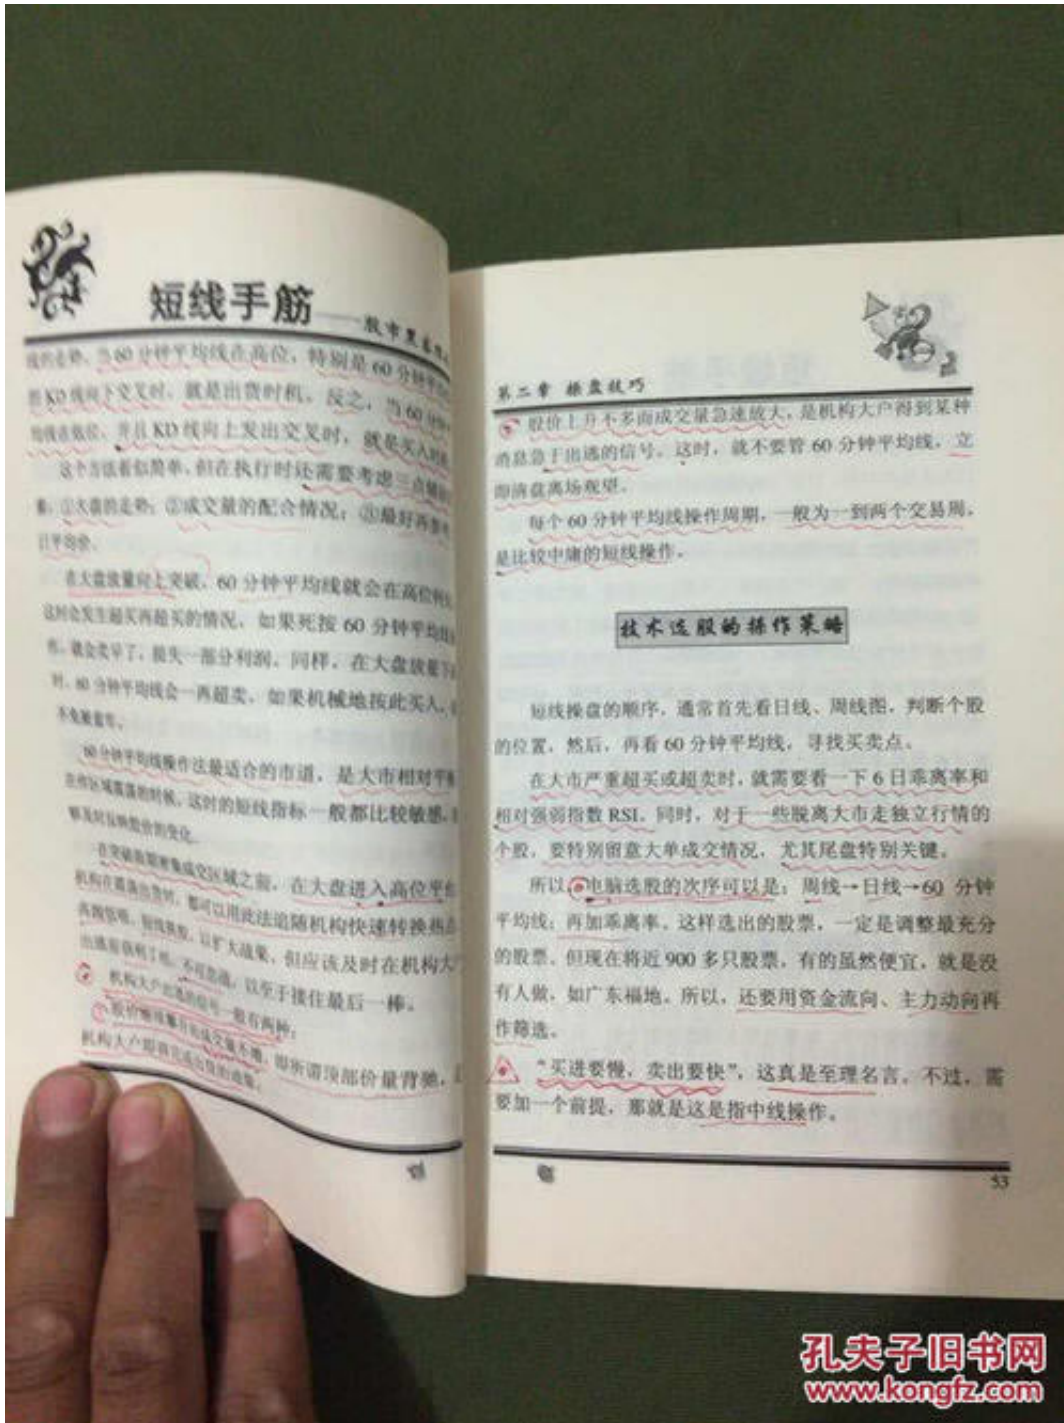 短线手筋——股市黑客
线的走势。当60分钟平均线在高位，特别是60分钟平均
KD线向下交叉时，就是出货时机。反之，当60分钟
均线在低位，并且KD线向上发出交叉时，就是买入时机
这个方法看似简单，但在执行时还需要考虑三点辅助
①大盘的走势；②成交量的配合情况；③最好再参考
日平均价。
在大盘放量向上突破，60分钟平均线就会在高位
这时会发生超买再超买的情况，如果死按60分钟平均线
作，就会卖早了，损失一部分利润。同样，在大盘放量下
时，60分钟平均线会一再超卖，如果机械地按此买入，
不免被套牢。
60分钟平均线操作法最适合的市道，是大市相对平衡
在作区域震荡的时候，这时的短线指标一般都比较敏感，
够及时反映股价的变化。
在突破前期密集成交区域之前，在大盘进入高位平台
机构在震荡出货时，都可以用此法追随机构快速转换热点
高抛低吸，短线换股，以扩大战果。但应该及时在机构大户
出逃前获利了结，不可恋战，以至于接住最后一棒。
机构大户出逃的信号一般有两种：
①股价继续攀升而成交量不增，即所谓顶部价量背驰，
机构大户即将完成出货的迹象。
第二章 操盘技巧
②股价上升不多而成交量急速放大，是机构大户得到某种
消息急于出逃的信号。这时，就不要管60分钟平均线，立
即清盘离场观望。
每个60分钟平均线操作周期，一般为一到两个交易周，
是比较中庸的短线操作。
技术选股的操作策略
短线操盘的顺序，通常首先看日线、周线图，判断个股
的位置，然后，再看60分钟平均线，寻找买卖点。
在大市严重超买或超卖时，就需要看一下6日乖离率和
相对强弱指数RSI。同时，对于一些脱离大市走独立行情的
个股，要特别留意大单成交情况，尤其尾盘特别关键。
所以，电脑选股的次序可以是：周线→日线→60分钟
平均线；再加乖离率。这样选出的股票，一定是调整最充分
的股票。但现在将近900多只股票，有的虽然便宜，就是没
有人做，如广东福地。所以，还要用资金流向、主力动向再
作筛选。
“买进要慢，卖出要快”，这真是至理名言。不过，需
要加一个前提，那就是这是指中线操作。
53
孔夫子旧书网
www.kongfz.com